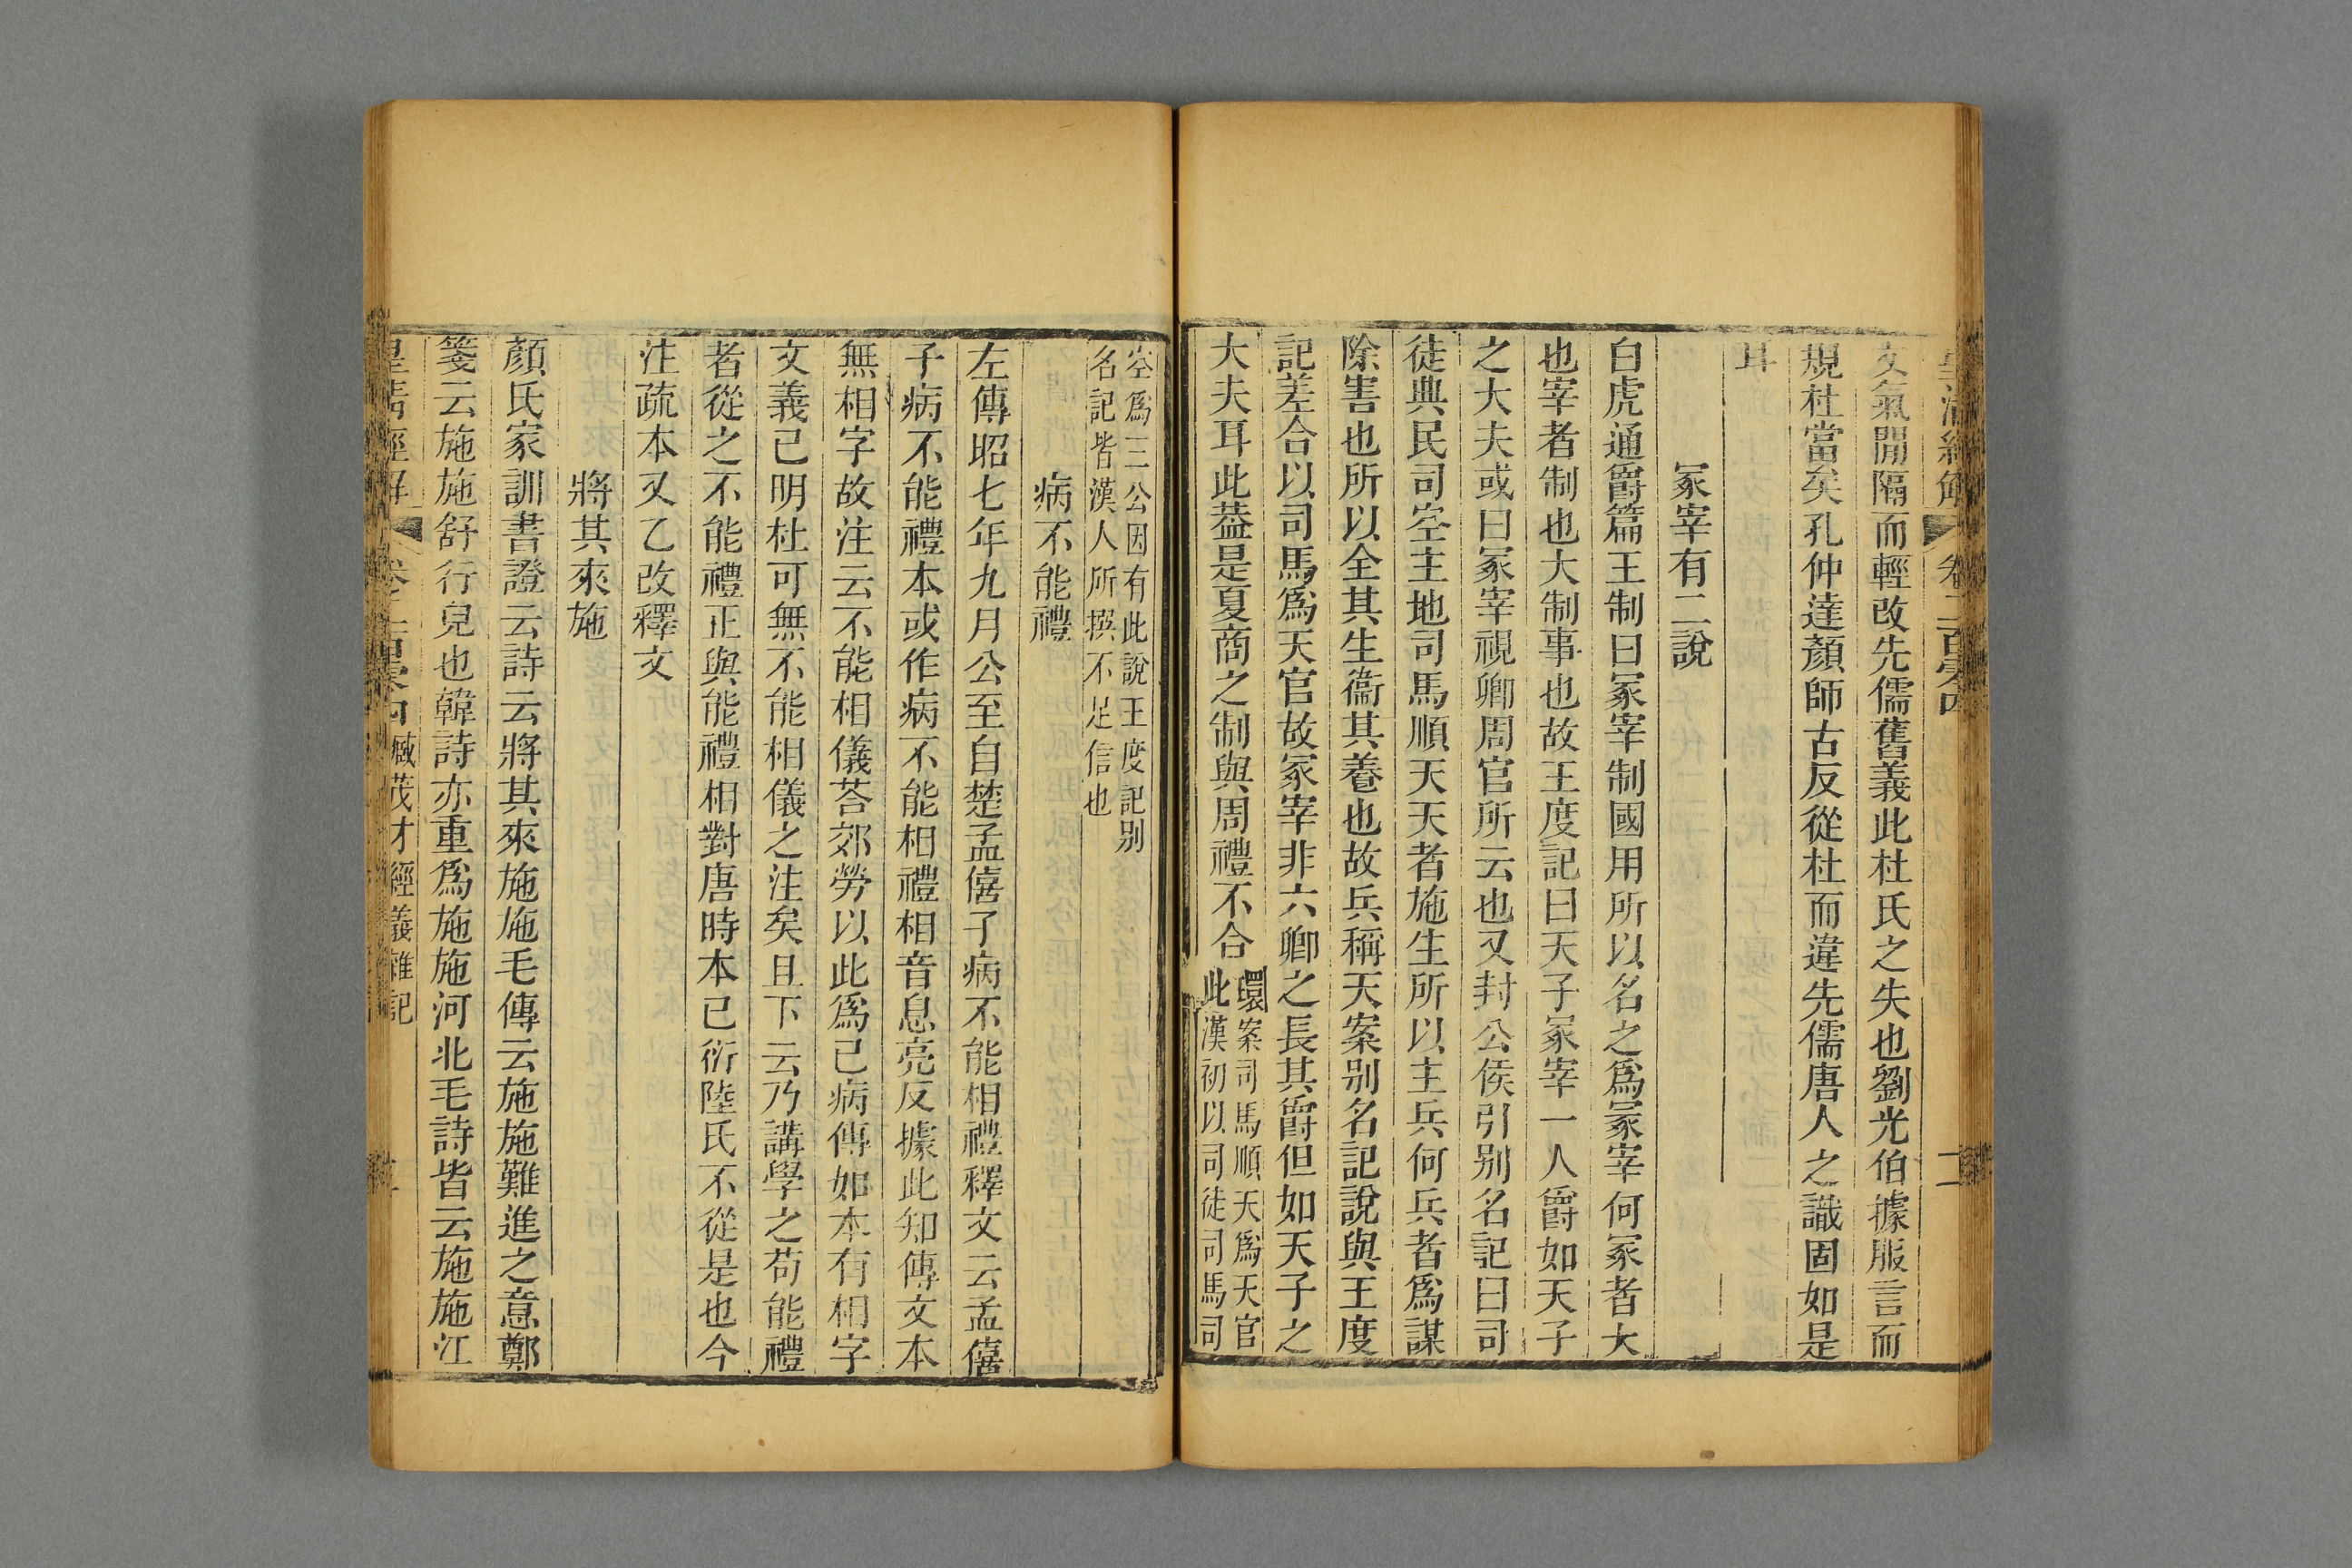 皇清經解 卷二百零四 二
文氣間隔而輕改先儒舊義此杜氏之失也劉光伯據服言而
規杜當矣孔仲達顏師古反從杜而違先儒唐人之識固如是
耳
冢宰有二說
白虎通爵篇王制曰冢宰制國用所以名之爲冢宰何冢者大
也宰者制也大制事也故王度記曰天子冢宰一人爵如天子
之大夫或曰冢宰視卿周官所云也又封公侯引别名記曰司
徒典民司空主地司馬順天天者施生所以主兵何兵者爲謀
除害也所以全其生衞其養也故兵稱天案别名記說與王度
記差合以司馬爲天官故冢宰非六卿之長其爵但如天子之
大夫耳此葢是夏商之制與周禮不合
環案司馬順天爲天官
此漢初以司徒司馬司
空爲三公因有此說王度記别
名記皆漢人所撰不足信也
病不能禮
左傳昭七年九月公至自楚孟僖子病不能相禮釋文云孟僖
子病不能禮本或作病不能相禮相音息亮反據此知傳文本
無相字故注云不能相儀荅郊勞以此爲己病傳如本有相字
文義已明杜可無不能相儀之注矣且下云乃講學之苟能禮
者從之不能禮正與能禮相對唐時本已衍陸氏不從是也今
注疏本又乙改釋文
將其來施
顏氏家訓書證云詩云將其來施施毛傳云施施難進之意鄭
箋云施施舒行皃也韓詩亦重爲施施河北毛詩皆云施施江
皇清經解 卷二百零四 臧茂才經義雜記